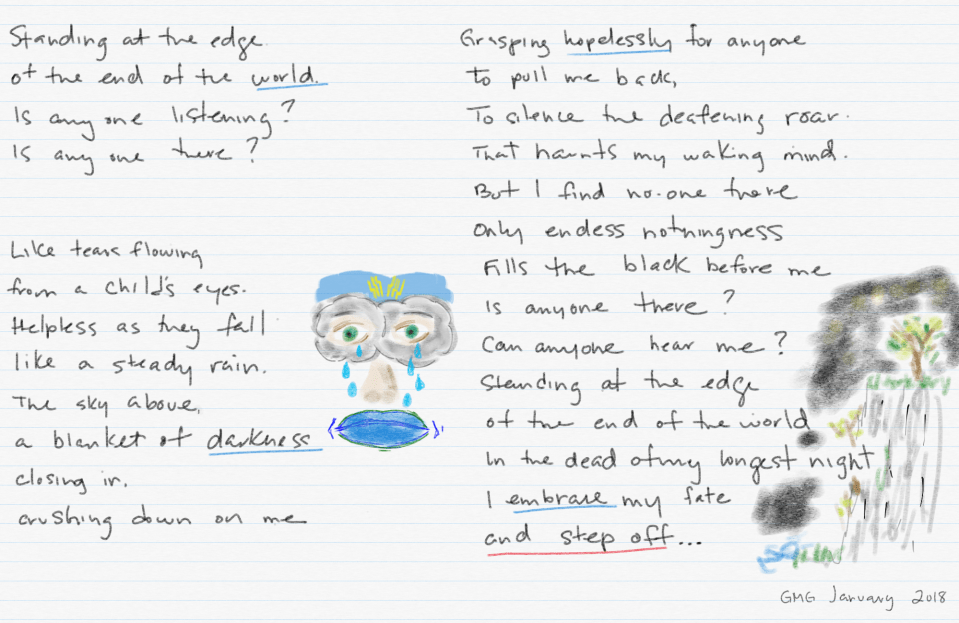 Standing at the edge
of the end of the world.
Is any one listening?
Is any one there?
Like tears flowing
from a child's eyes.
Helpless as they fall
like a steady rain.
The sky above,
a blanket of darkness
closing in.
crushing down on me
Grasping hopelessly for anyone
to pull me back,
To silence the deafening roar.
That haunts my waking mind.
But I find no-one there
Only endless nothingness
Fills the black before me
Is anyone there?
Can anyone hear me?
Standing at the edge
of the end of the world
In the dead of my longest night
I embrase my fate
and step off...
GMG January 2018